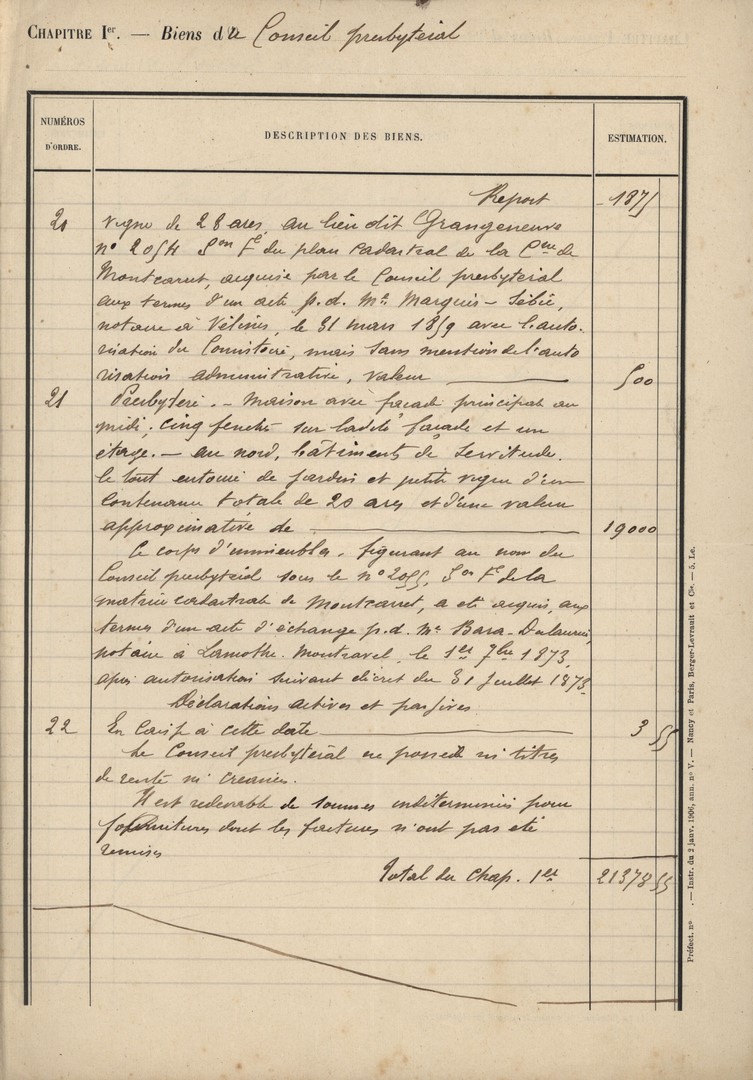 CHAPITRE Ier. — Biens du Conseil presbytéral
NUMÉROS D'ORDRE.
DESCRIPTION DES BIENS.
ESTIMATION.
Report 1875
20 Vigne de 28 ares, au lieu dit Grangeneuve
n° 2054 Son F du plan cadastral de la Cne de
Montcaret, acquise par le Conseil presbytéral
aux termes d'un acte p.d. Me Marquis-Sébie,
notaire à Vélines, le 31 mars 1859 avec l'auto-
risation du Consistoire, mais sans mention de l'auto
risation administrative, valeur 500
21 Presbytère. — Maison avec façade principal au
midi; cinq fenêtres sur ladite façade et un
étage. — au nord, bâtiments de servitude.
le tout entouré de jardin et petite vigne d'une
contenance totale de 20 ares et d'une valeur
approximative de 19000
Ce corps d'immeubles, figurant au nom du
Conseil presbytéral sous le n° 2055, Son F de la
matrice cadastrale de Montcaret, a été acquis, aux
termes d'un acte d'échange p.d. Me Bara-Dulaurier,
notaire à Lamothe-Montravel, le 1er 7bre 1873,
après autorisation suivant décret du 31 Juillet 1873.
Déclarations actives et passives
22 En caisse à cette date 3 55
Le Conseil presbytéral ne possède ni titres
de rente ni créances.
Il est redevable de sommes indéterminées pour
fournitures dont les factures n'ont pas été
remises
Total du Chap. 1er 21378 55
Préfect. n° . — Instr. du 2 janv. 1906, ann. n° V. — Nancy et Paris, Berger-Levrault et Cie. — 5. Le.